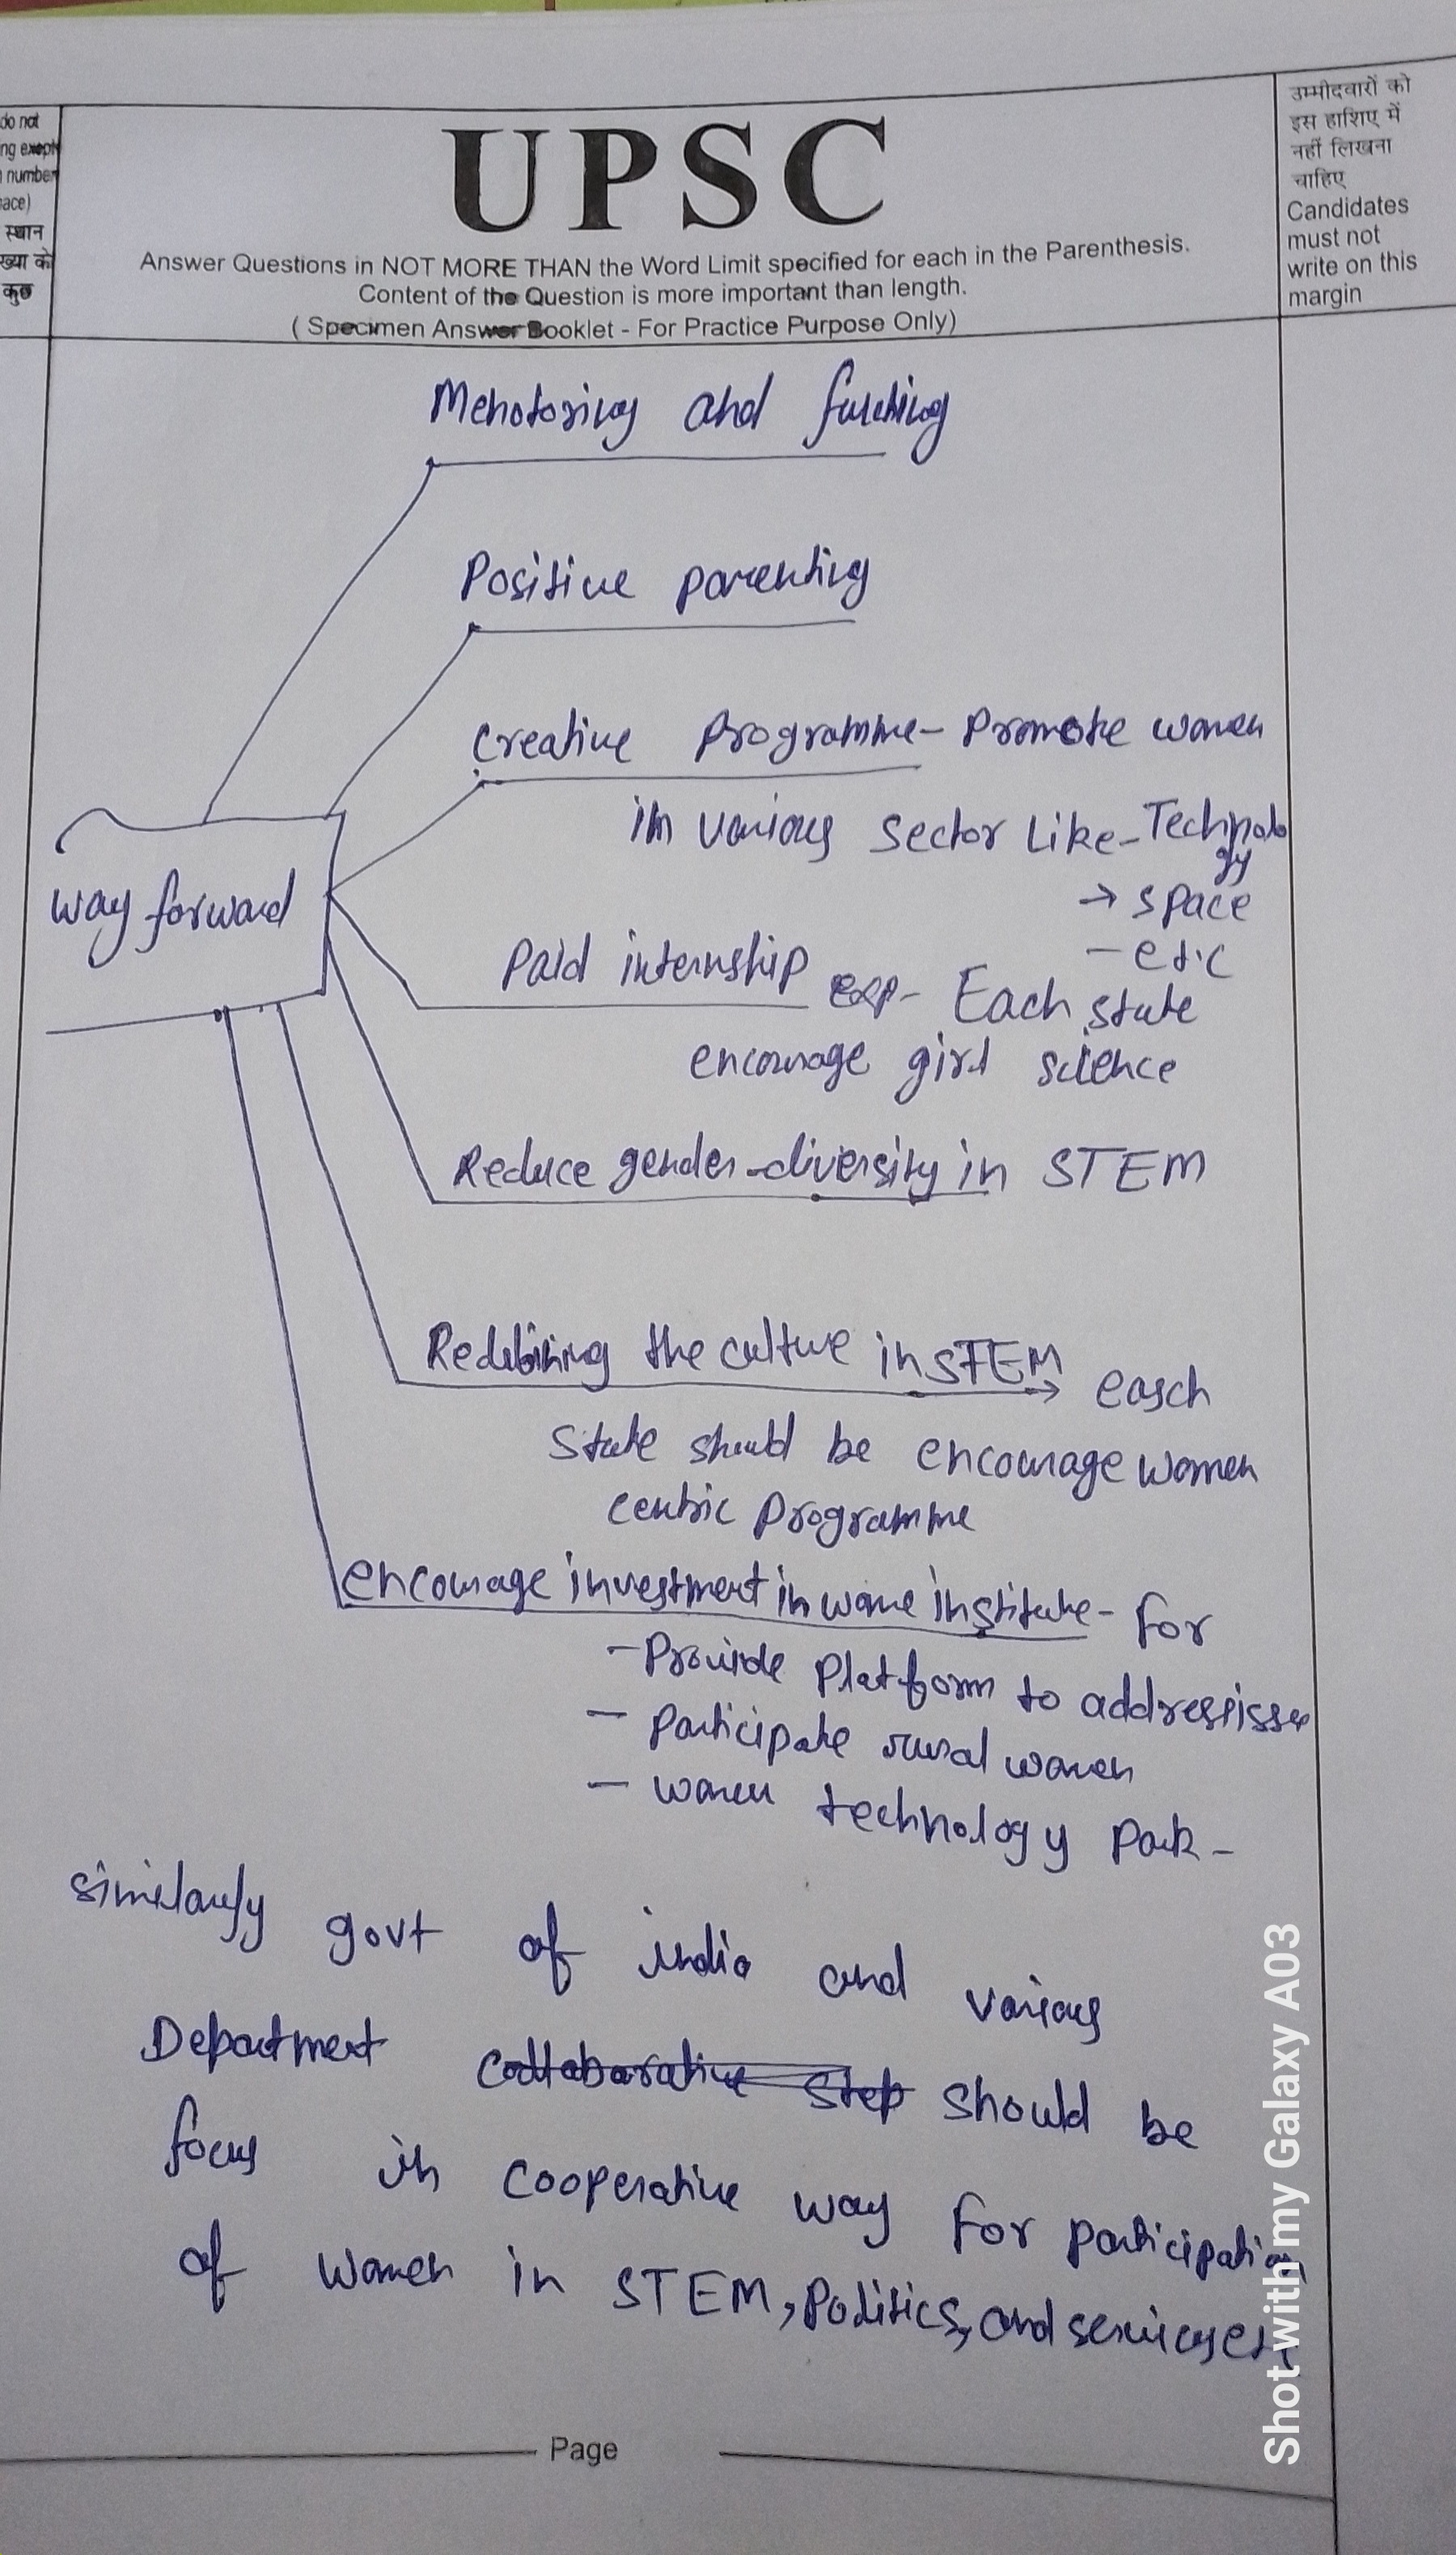 do not
ng exept
number
ace)
स्थान
ख्या के
कुछ
UPSC
Answer Questions in NOT MORE THAN the Word Limit specified for each in the Parenthesis.
Content of the Question is more important than length.
( Specimen Answer Booklet - For Practice Purpose Only)
उम्मीदवारों को
इस हाशिए में
नहीं लिखना
चाहिए
Candidates
must not
write on this
margin
Menotoring and funding
Positive parenting
Creative Programme- Promote women
in various Sector Like-Technolo
gy
→ space
- etc
way forward
Paid internship exp- Each state
encourage girl science
Reduce gender-diversity in STEM
the culture in STEM → easch
State should be encourage women
centric Programme
encourage investment in wome institute- for
- Provide Platform to address issue
- participate rural women
- women technology Park-
similarly govt of india and various
Department Collaborative Step should be
focus in cooperative way for participation
of women in STEM, Politics, and
Page
Shot with my Galaxy A03